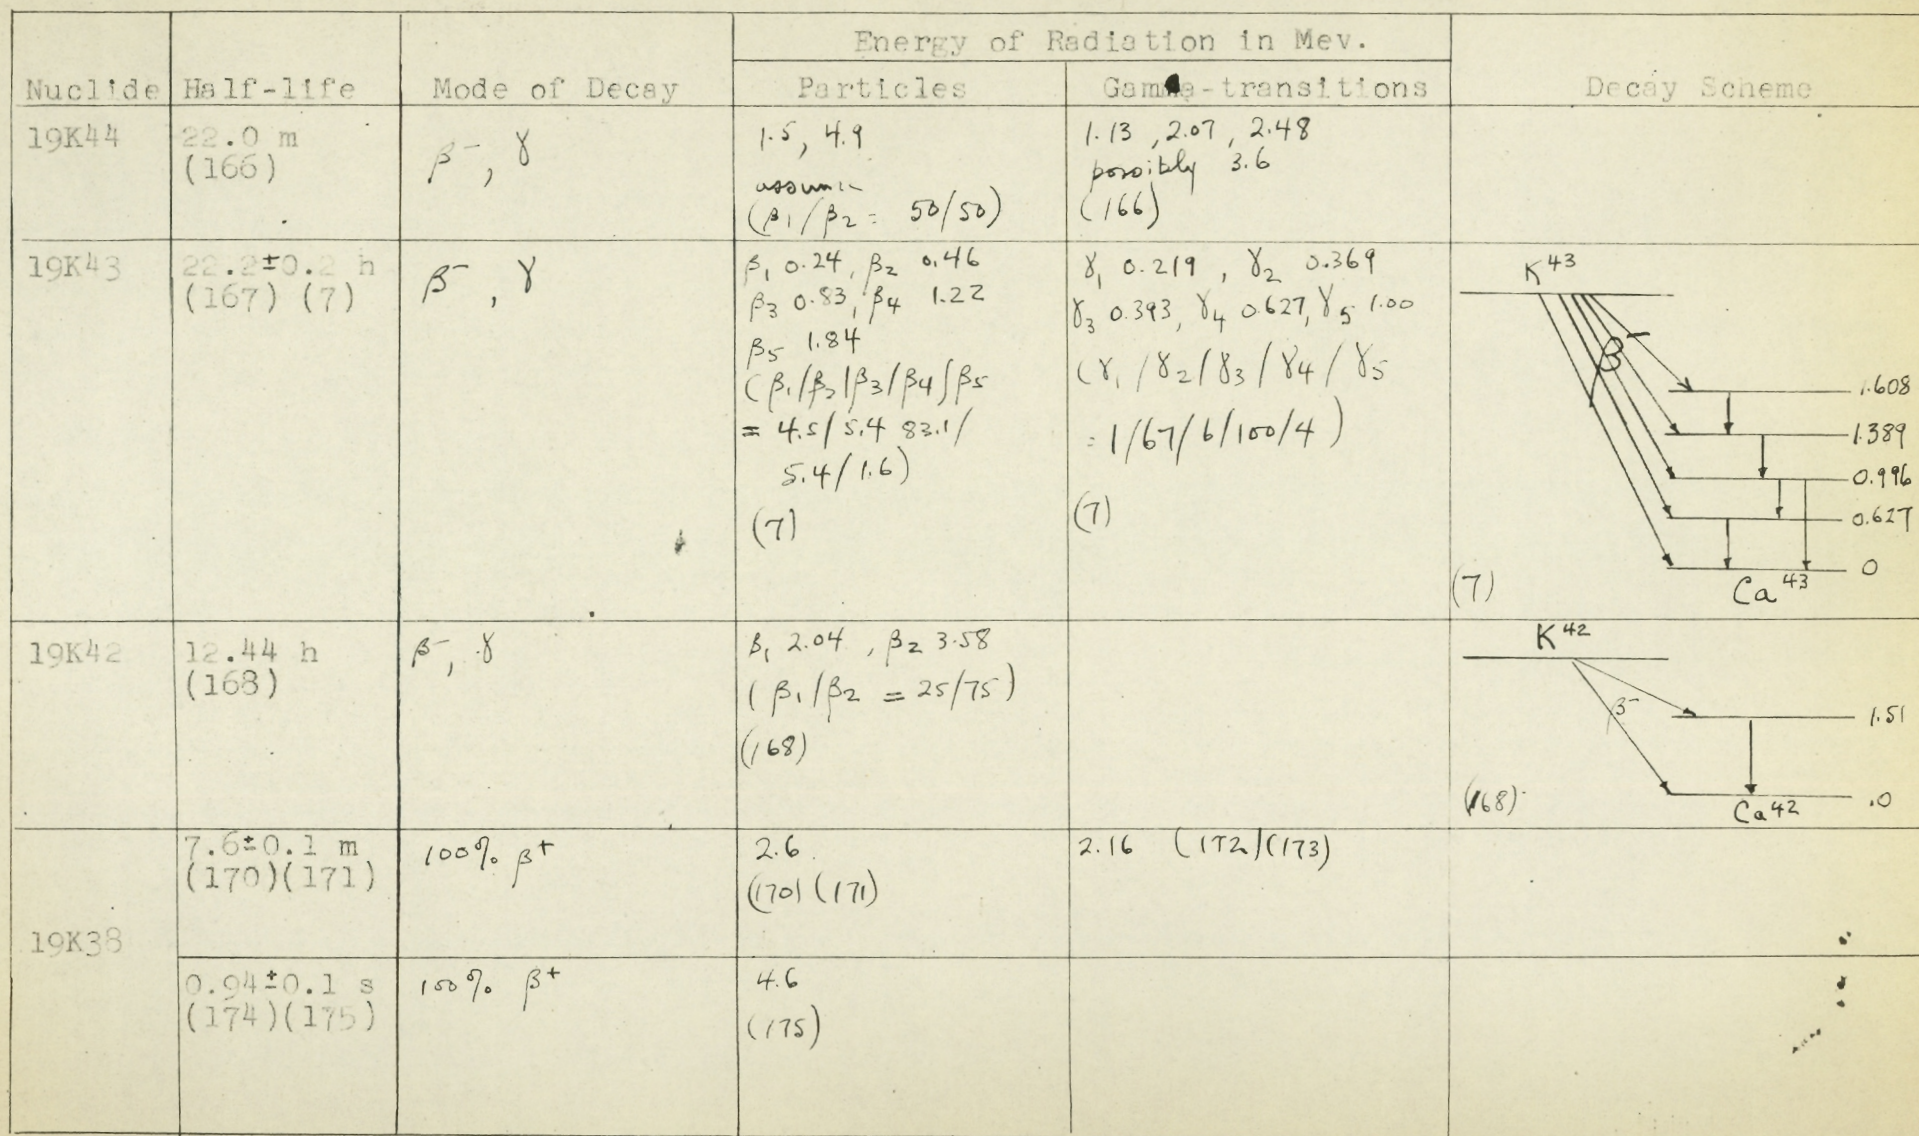 Energy of Radiation in Mev.
Nuclide Half-life Mode of Decay Particles Gamma-transitions Decay Scheme
19K44
22.0 m
(166)
β⁻, γ
1.5, 4.9
(β₁/β₂ = 50/50)
1.13, 2.07, 2.48
possibly 3.6
(166)
19K43
22.2±0.2 h
(167) (7)
β⁻, γ
β₁ 0.24, β₂ 0.46
β₃ 0.83, β₄ 1.22
β₅ 1.84
(β₁/β₂/β₃/β₄/β₅
= 4.5/5.4 83.1/
5.4/1.6)
(7)
γ₁ 0.219, γ₂ 0.369
γ₃ 0.393, γ₄ 0.627, γ₅ 1.00
(γ₁/γ₂/γ₃/γ₄/γ₅
= 1/67/6/100/4)
(7)
K⁴³
β⁻
1.608
1.389
0.996
0.627
0
Ca⁴³
(7)
19K42
12.44 h
(168)
β⁻, γ
β₁ 2.04, β₂ 3.58
(β₁/β₂ = 25/75)
(168)
K⁴²
β⁻
1.51
.0
Ca⁴²
(168)
19K38
7.6±0.1 m
(170)(171)
100% β⁺
2.6
(170) (171)
2.16 (172)(173)
0.94±0.1 s
(174)(175)
100% β⁺
4.6
(175)